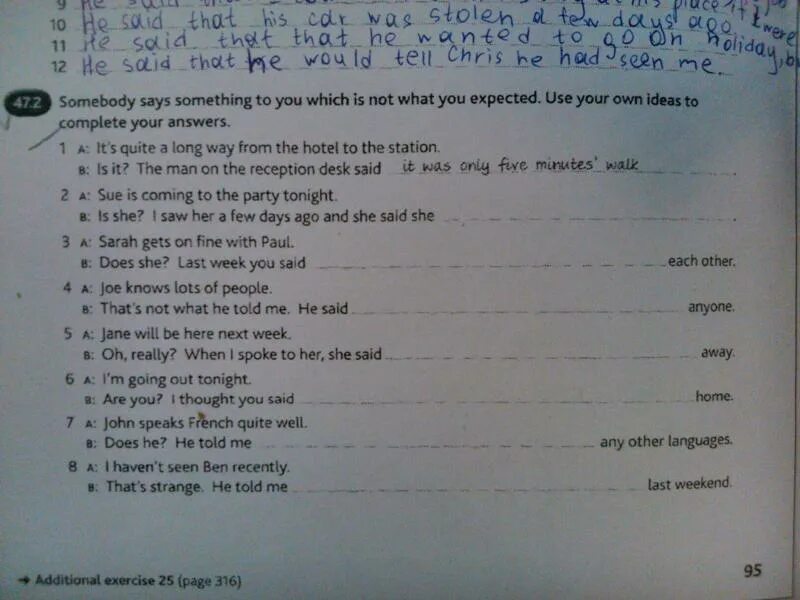 9 He said that
his place
10 He said that his car was stolen a few days ago
were
11 He said that that he wanted to go on holiday, b
12 He said that he would tell Chris he had seen me.
47.2 Somebody says something to you which is not what you expected. Use your own ideas to
complete your answers.
1 A: It's quite a long way from the hotel to the station.
B: Is it? The man on the reception desk said it was only five minutes' walk .
2 A: Sue is coming to the party tonight.
B: Is she? I saw her a few days ago and she said she .
3 A: Sarah gets on fine with Paul.
B: Does she? Last week you said each other.
4 A: Joe knows lots of people.
B: That's not what he told me. He said anyone.
5 A: Jane will be here next week.
B: Oh, really? When I spoke to her, she said away.
6 A: I'm going out tonight.
B: Are you? I thought you said home.
7 A: John speaks French quite well.
B: Does he? He told me any other languages.
8 A: I haven't seen Ben recently.
B: That's strange. He told me last weekend.
→ Additional exercise 25 (page 316)
95